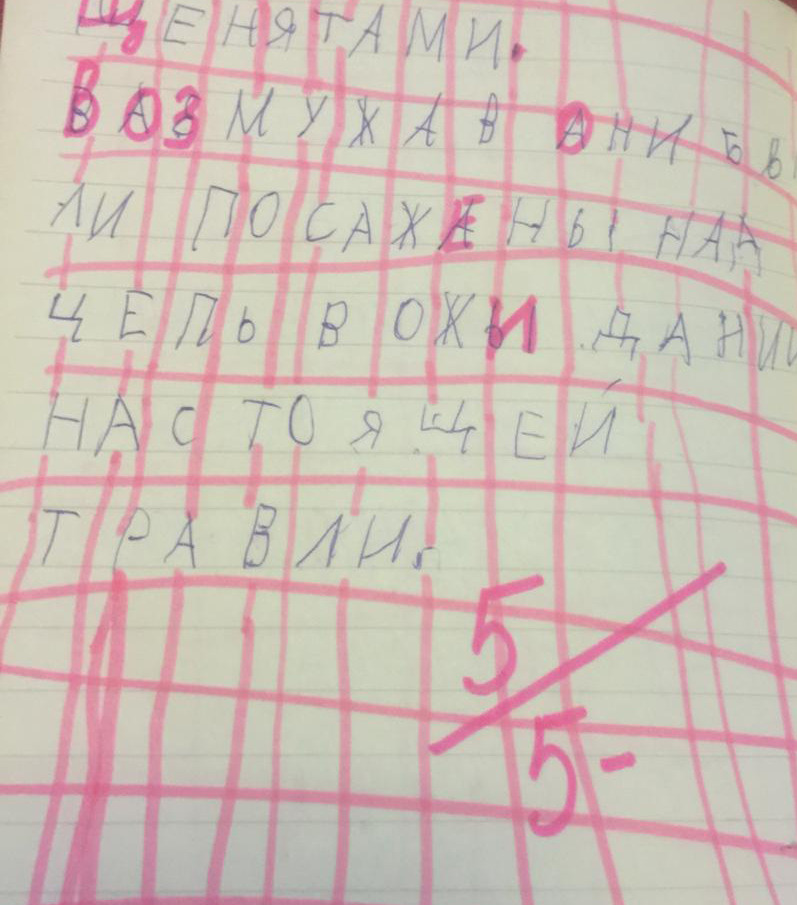 ЩЕНЯТАМИ.
ВОЗМУЖАВ ОНИ БЫ
ЛИ ПОСАЖЕНЫ НАД
ЦЕПЬ В ОЖИДАНИИ
НАСТОЯЩЕЙ
ТРАВЛИ.
5/5-